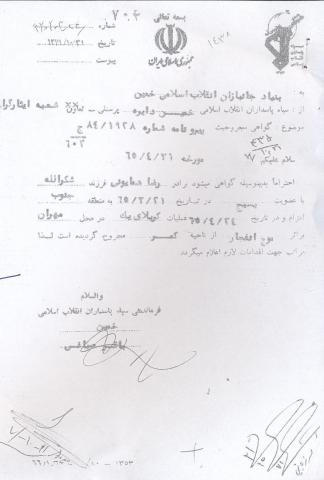 بسمه تعالی
شماره
جمهوری اسلامی ایران
تاریخ ۱۳۷۱/۱۰/۲۱
پیوست
به : بنیاد جانبازان انقلاب اسلامی خمین
از : سپاه پاسداران انقلاب اسلامی خمین دایره پرسنلی - تعاون شعبه ایثارگران
موضوع : گواهی مجروحیت پیرو نامه شماره ۸۴/۱۹۲۸ ج
سلام علیکم مورخه ۶۵/۴/۲۱
احتراما بدینوسیله گواهی میشود برادر رضا همایونی فرزند شکرالله
با عضویت بسیج در تاریخ ۶۵/۲/۲۱ به منطقه جنوب
اعزام و در تاریخ ۶۵/۴/۲۴ عملیات کربلای یک در محل مهران
براثر موج انفجار از ناحیه کمر مجروح گردیده است لذا
مراتب جهت اقدامات لازم اعلام میگردد
والسلام
فرماندهی سپاه پاسداران انقلاب اسلامی
خمین